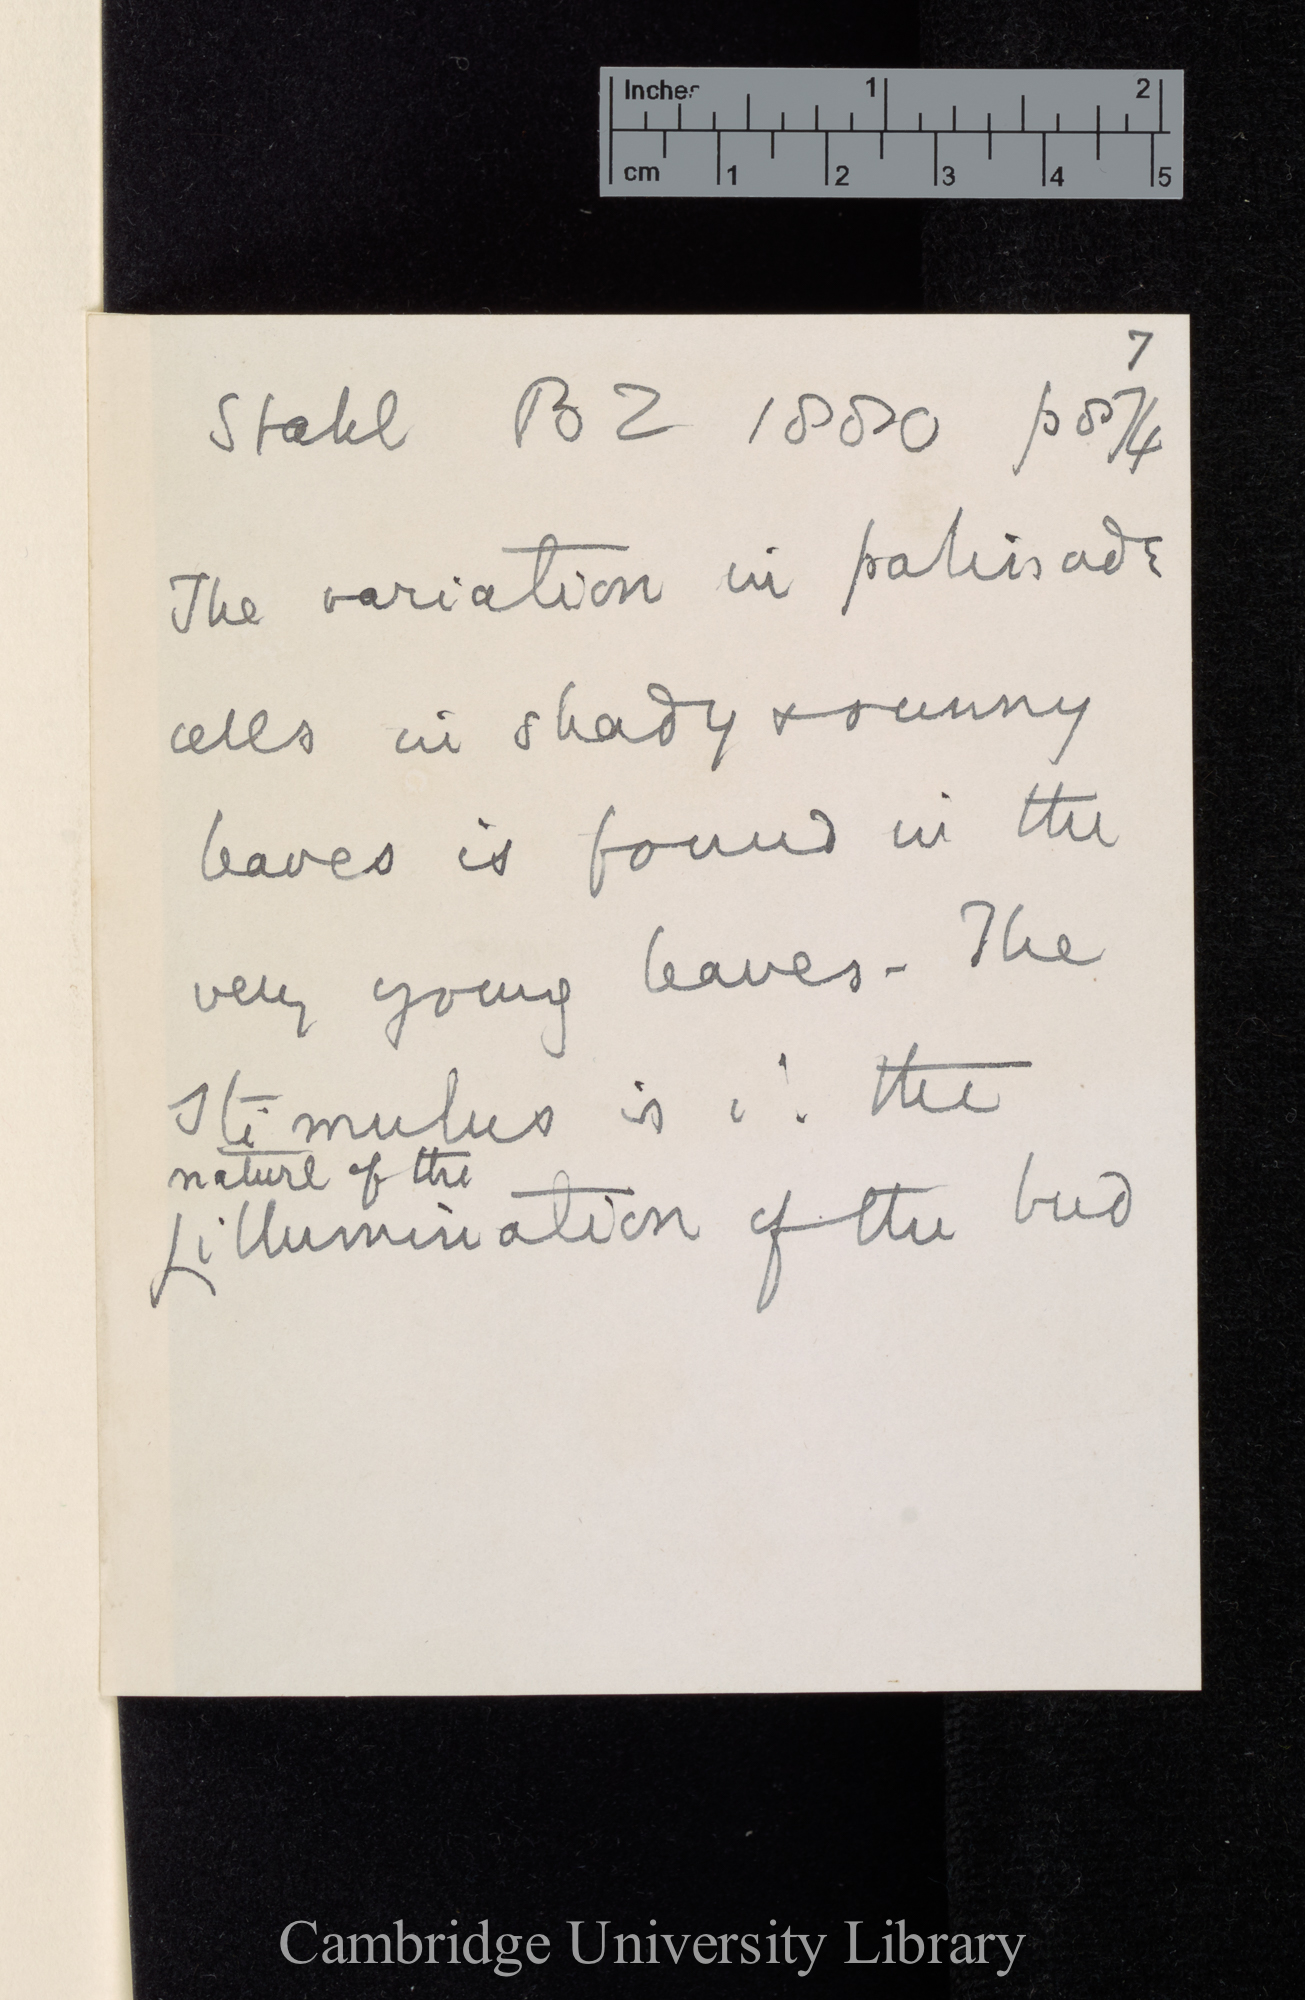 Inches 1 2
cm 1 2 3 4 5
7
Stahl BZ 1880 p 874
The variation in palisade
cells in shady & sunny
leaves is found in the
very young leaves - The
Stimulus is the
nature of the
illumination of the bud
Cambridge University Library